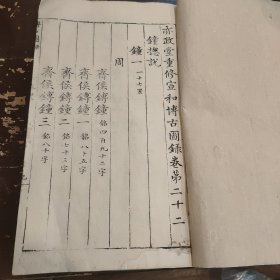 亦政堂重修宣和博古圖錄卷第二十二
鐘總說
鐘一 一十七器
周
齊�鎛鐘 銘四百九十二字
齊侯鎛鐘一 銘八十五字
齊侯鎛鐘二 銘七十三字
齊侯鎛鐘三 銘八十字